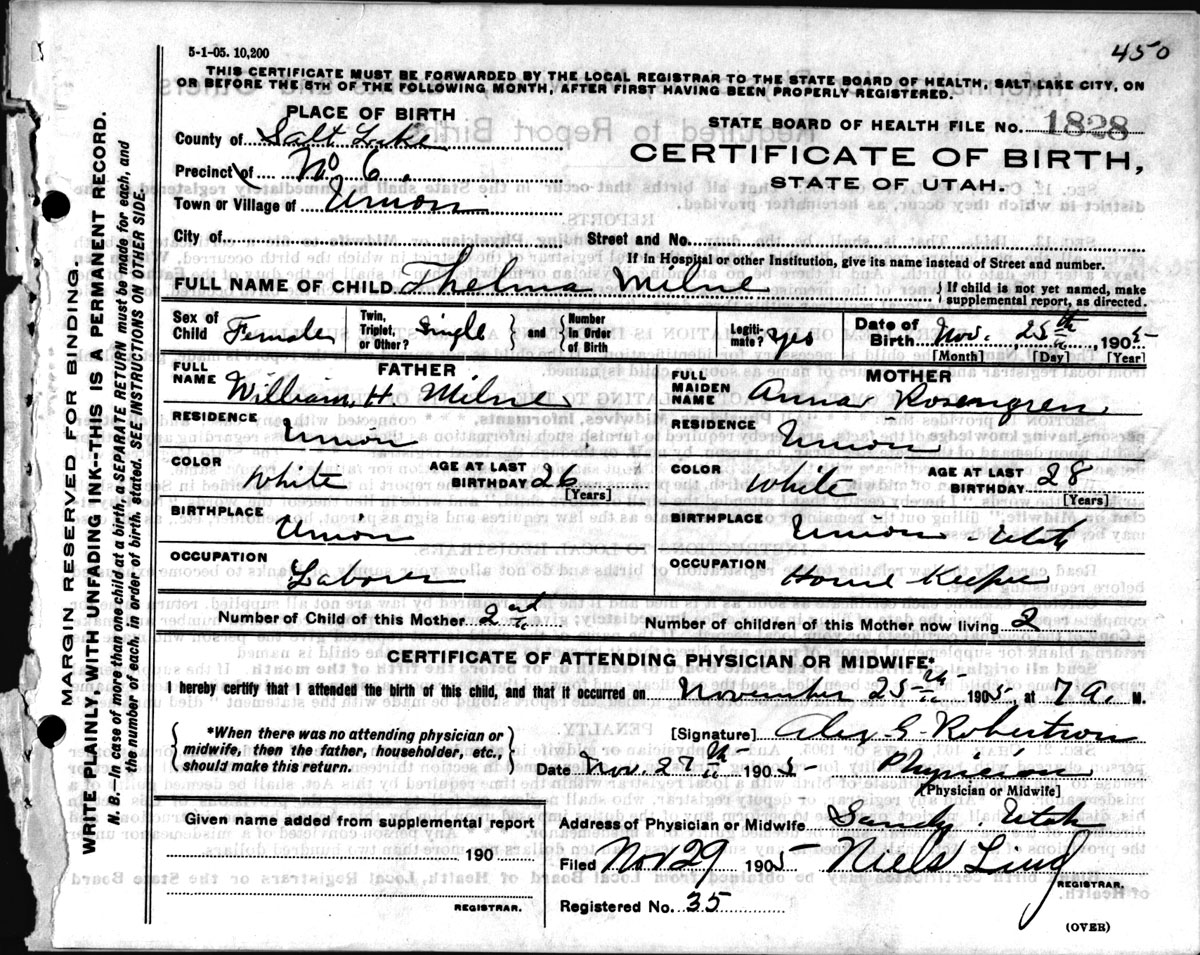 5-1-05. 10,200
450
THIS CERTIFICATE MUST BE FORWARDED BY THE LOCAL REGISTRAR TO THE STATE BOARD OF HEALTH, SALT LAKE CITY, ON
OR BEFORE THE 5TH OF THE FOLLOWING MONTH, AFTER FIRST HAVING BEEN PROPERLY REGISTERED.
PLACE OF BIRTH
County of Salt Lake
Precinct of No 6.
Town or Village of Union
STATE BOARD OF HEALTH FILE NO. 1828
CERTIFICATE OF BIRTH,
STATE OF UTAH.
City of Street and No.
If in Hospital or other Institution, give its name instead of Street and number.
FULL NAME OF CHILD Thelma Milne { If child is not yet named, make
supplemental report, as directed.
Sex of Child Female Twin, Triplet, or Other? Single } and { Number in Order of Birth Legiti- mate? yes Date of Birth Nov. 25th, 1905
[Month] [Day] [Year]
FATHER
FULL NAME William H. Milne
RESIDENCE
Union
COLOR White AGE AT LAST BIRTHDAY 26
[Years]
BIRTHPLACE
Union
OCCUPATION
Laborer
MOTHER
FULL MAIDEN NAME Anna Rosengren
RESIDENCE
Union
COLOR White AGE AT LAST BIRTHDAY 28
[Years]
BIRTHPLACE
Union Utah
OCCUPATION
House Keeper
Number of Child of this Mother 2nd Number of children of this Mother now living 2
CERTIFICATE OF ATTENDING PHYSICIAN OR MIDWIFE*
I hereby certify that I attended the birth of this child, and that it occurred on November 25th 1905, at 7 A. M.
{ *When there was no attending physician or
midwife, then the father, householder, etc.,
should make this return. }
[Signature] Alex G. Robertson
Date Nov. 27th 1905 Physician
[Physician or Midwife]
Given name added from supplemental report
190
REGISTRAR.
Address of Physician or Midwife Sandy Utah
Filed Nov 29 1905 Niels Lind
REGISTRAR.
Registered No. 35
(OVER)
MARGIN RESERVED FOR BINDING.
WRITE PLAINLY WITH UNFADING INK--THIS IS A PERMANENT RECORD.
N. B.--In case of more than one child at a birth, a SEPARATE RETURN must be made for each, and
the number of each, in order of birth, stated. SEE INSTRUCTIONS ON OTHER SIDE.